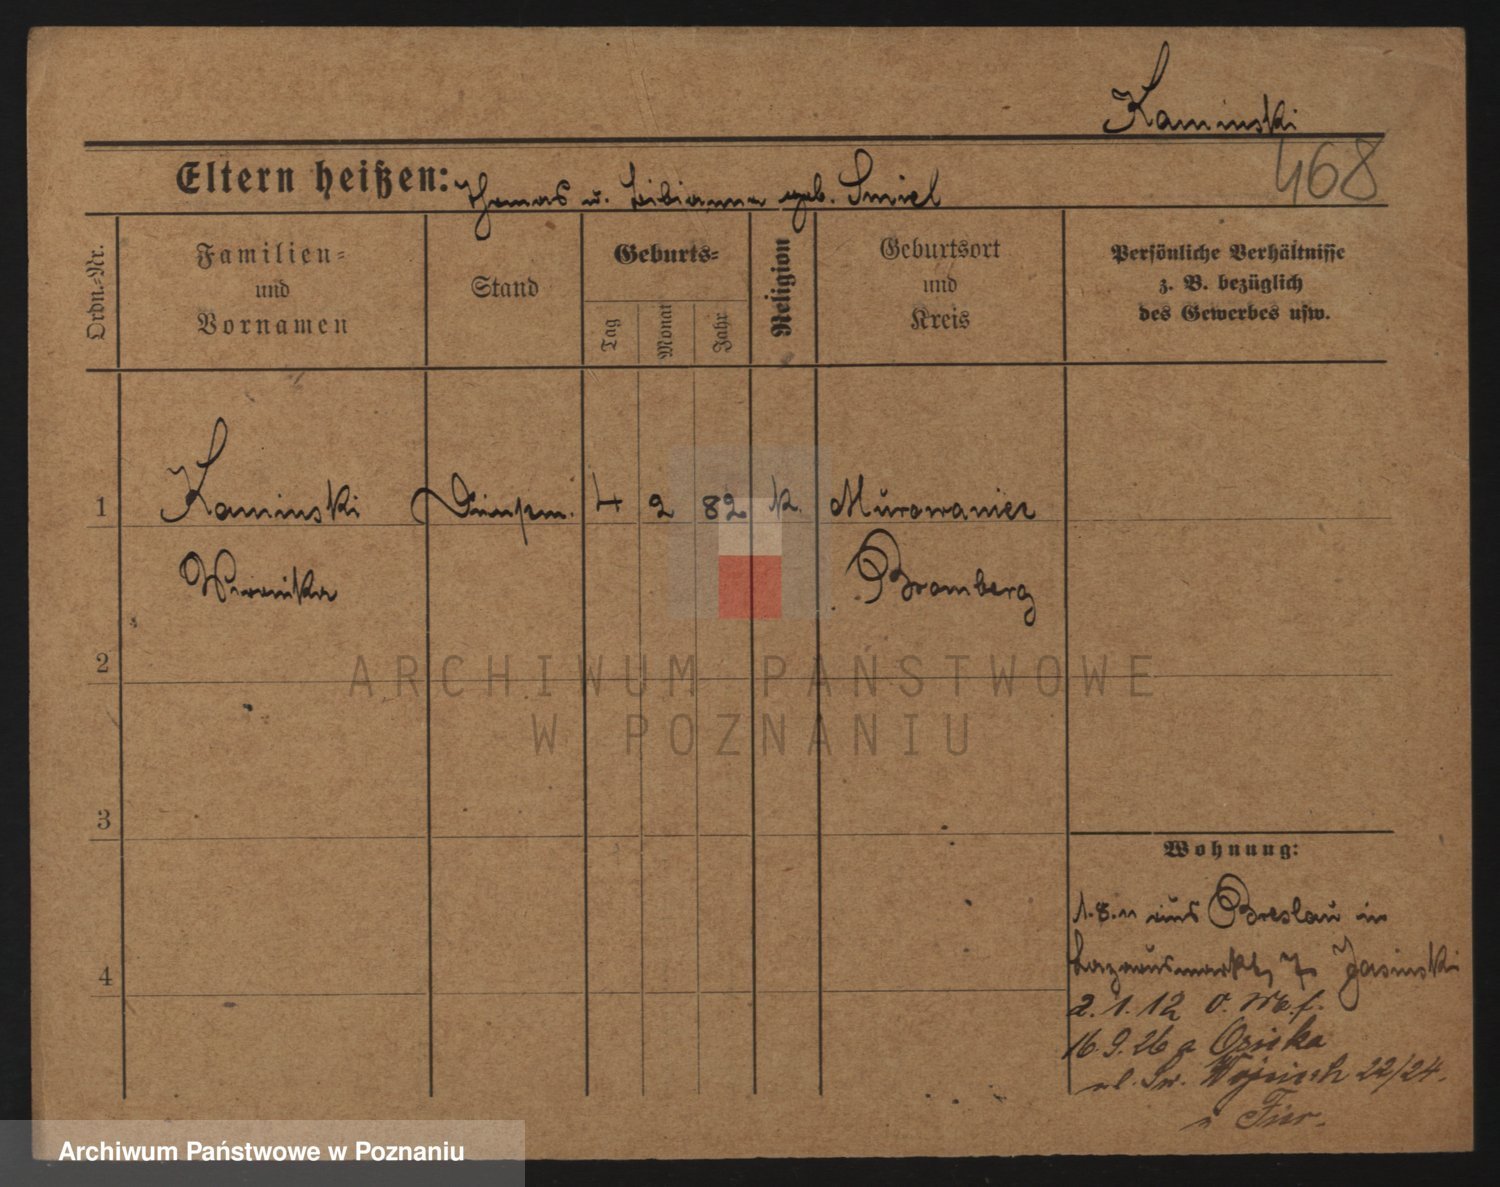 Kaminski
468
Eltern heißen: Thomas u. Bibianna geb. Smiel
Ordn.-Nr.
Familien-
und
Vornamen
Stand
Geburts-
Tag
Monat
Jahr
Religion
Geburtsort
und
Kreis
Persönliche Verhältnisse
z. B. bezüglich
des Gewerbes usw.
1 Kaminski 4 2 82 k. Murowaniec
Bromberg
2
3
4
Wohnung:
1.8.11 aus Breslau in
Lazarusmarkt 7 Jasinski
2.1.12
16.9.26 a Osieka
ul. Św. Wojciech 22/24.
ARCHIWUM PAŃSTWOWE
W POZNANIU
Archiwum Państwowe w Poznaniu